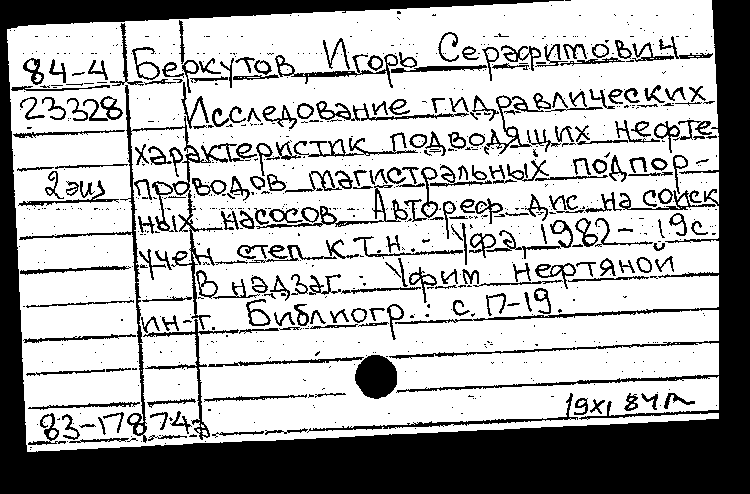 84-4 Беркутов, Игорь Серафимович
23328 Исследование гидравлических
характеристик подводящих нефте
2 экз проводов магистральных подпор-
ных насосов. Автореф. дис. на соиск
учен степ к.т.н. - Уфа, 1982 - 19с.
В надзаг.: Уфим нефтяной
ин-т. Библиогр.: с. 17-19.
83-17874а 19 XI 84